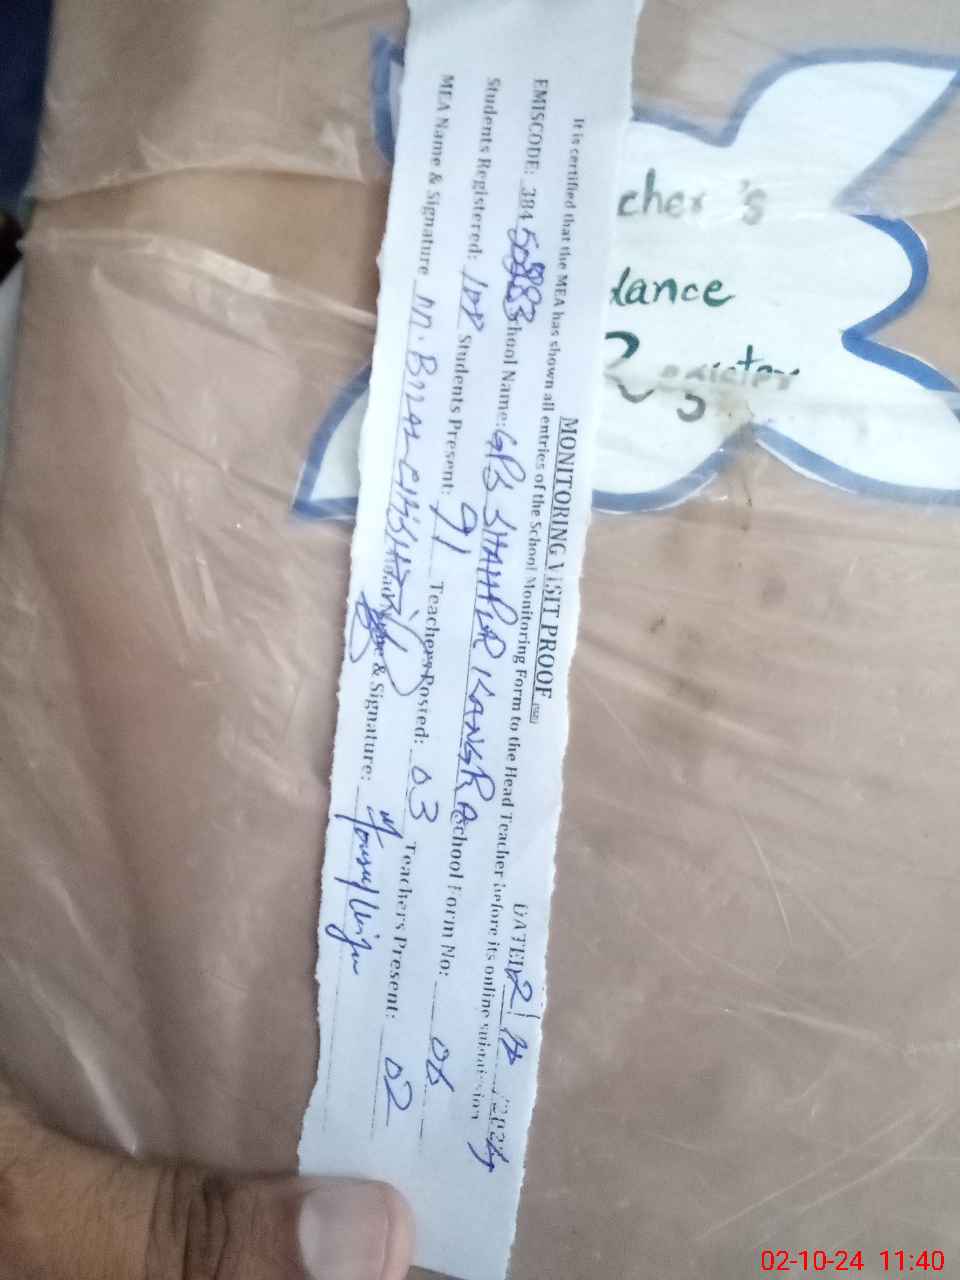 MONITORING VISIT PROOF
DATED 2 / 10 / 2024
It is certified that the MEA has shown all entries of the School Monitoring Form to the Head Teacher before its online submission
EMISCODE: 384 School Name: GPS SHAHPUR KANGRA School Form No: 06
Students Registered: 108 Students Present: 91 Teachers Posted: 03 Teachers Present: 02
MEA Name & Signature M. & Signature:
cher's
dance
Register
02-10-24 11:40